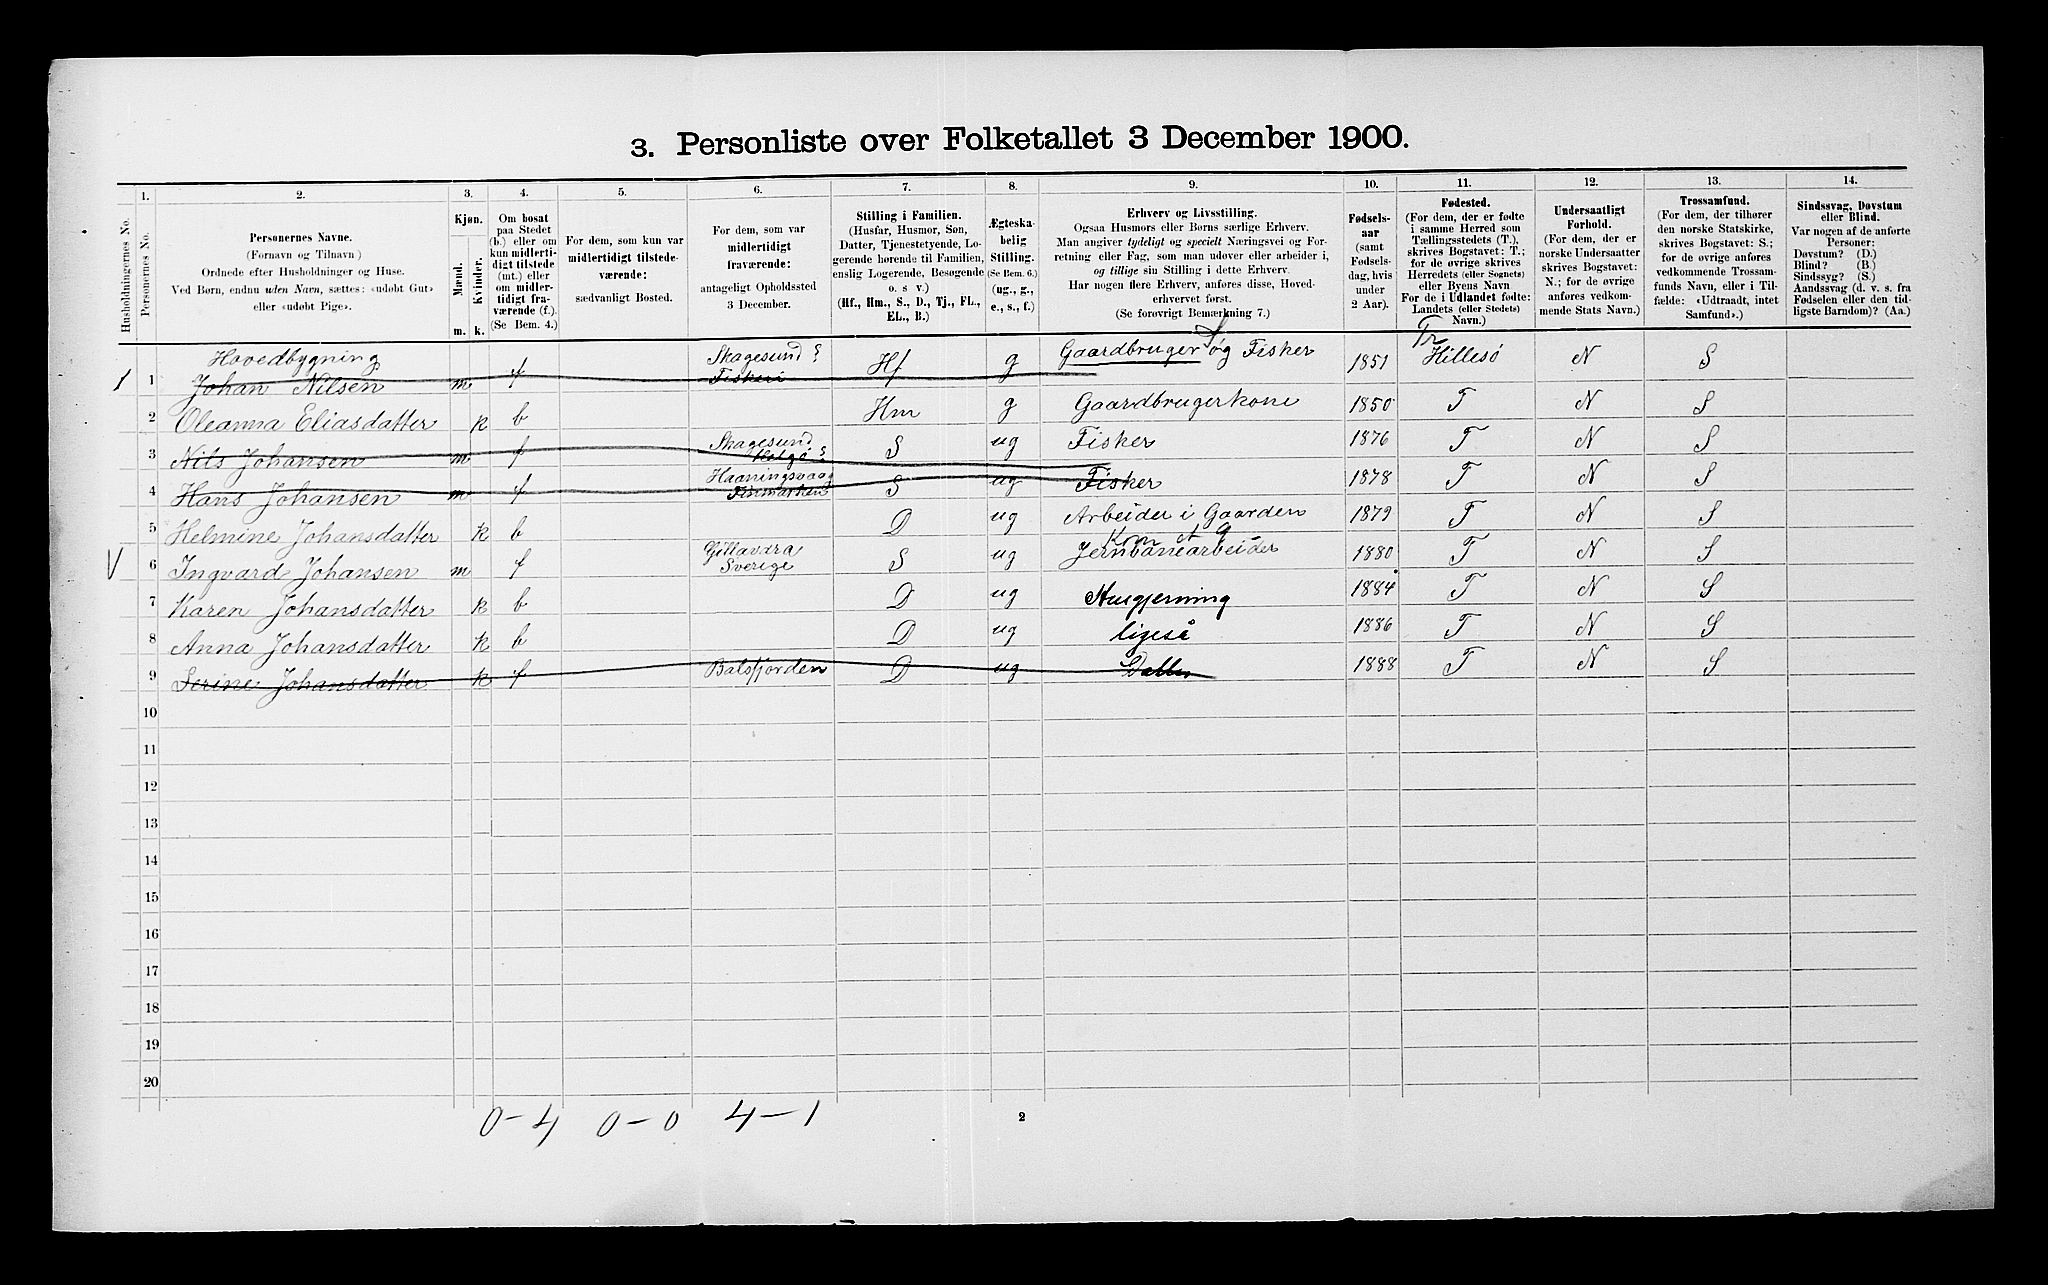 3. Personliste over Folketallet 3 December 1900.
1. 2. 3. 4. 5. 6. 7. 8. 9. 10. 11. 12. 13. 14.
Husholdningernes No.
Personernes No.
Personernes Navne.
(Fornavn og Tilnavn)
Ordnede efter Husholdninger og Huse.
Ved Børn, endnu uden Navn, sættes: «udøbt Gut»
eller «udøbt Pige».
Kjøn.
Mænd.
Kvinder.
m. k.
Om bosat
paa Stedet
(b.) eller om
kun midlerti-
digt tilstede
(mt.) eller
om midler-
tidigt fra-
værende (f.).
(Se Bem. 4.)
For dem, som kun var
midlertidigt tilstede-
værende:
sædvanligt Bosted.
For dem, som var
midlertidigt
fraværende:
antageligt Opholdssted
3 December.
Stilling i Familien.
(Husfar, Husmor, Søn,
Datter, Tjenestetyende, Lo-
gerende hørende til Familien,
enslig Logerende, Besøgende
o. s. v.)
(Hf., Hm., S., D., Tj., FL.,
EL., B.)
Ægteska-
belig
Stilling.
(Se Bem. 6.)
(ug., g.,
e., s., f.)
Erhverv og Livsstilling.
Ogsaa Husmors eller Børns særlige Erhverv.
Man angiver tydeligt og specielt Næringsvei og For-
retning eller Fag, som man udøver eller arbeider i,
og tillige sin Stilling i dette Erhverv.
Har nogen flere Erhverv, anføres disse, Hoved-
erhvervet først.
(Se forøvrigt Bemærkning 7.)
Fødsels-
aar
(samt
Fødsels-
dag, hvis
under
2 Aar).
Fødested.
(For dem, der er fødte
i samme Herred som
Tællingsstedets (T.),
skrives Bogstavet: T.;
for de øvrige skrives
Herredets (eller Sognets)
eller Byens Navn
For de i Udlandet fødte:
Landets (eller Stedets)
Navn.)
Undersaatligt
Forhold.
(For dem, der er
norske Undersaatter
skrives Bogstavet:
N.; for de øvrige
anføres vedkom-
mende Stats Navn.)
Trossamfund.
(For dem, der tilhører
den norske Statskirke,
skrives Bogstavet: S.;
for de øvrige anføres
vedkommende Trossam-
funds Navn, eller i Til-
fælde: «Udtraadt, intet
Samfund».)
Sindssvag, Døvstum
eller Blind.
Var nogen af de anførte
Personer:
Døvstum? (D.)
Blind? (B.)
Sindssyg? (S.)
Aandssvag (d. v. s. fra
Fødselen eller den tid-
ligste Barndom)? (Aa.)
Hovedbygning
1 1 Johan Nilsen m f Skagesund Fiskeri Hf g Gaardbruger S og Fisker 1851 Tr Hillesö N S
2 Oleanna Eliasdatter k b Hm g Gaardbrugerkone 1850 T N S
3 Nils Johansen m f Skagesund S ug Fisker 1876 T N S
4 Hans Johansen m f Haaningsvaag Finmarken S ug Fisker 1878 T N S
5 Helmine Johansdatter k b D ug Arbeider i Gaarden 1879 T N S
V 6 Ingvard Johansen m f Gellavara Sverige S ug Jernbanearbeider 1880 T N S
7 Karen Johansdatter k b D ug Husgjerning 1884 T N S
8 Anna Johansdatter k b D ug ligeså 1886 T N S
9 Serine Johansdatter k f Balsfjorden D ug Datter 1888 T N S
10
11
12
13
14
15
16
17
18
19
20
0-4 0-0 4-1
2